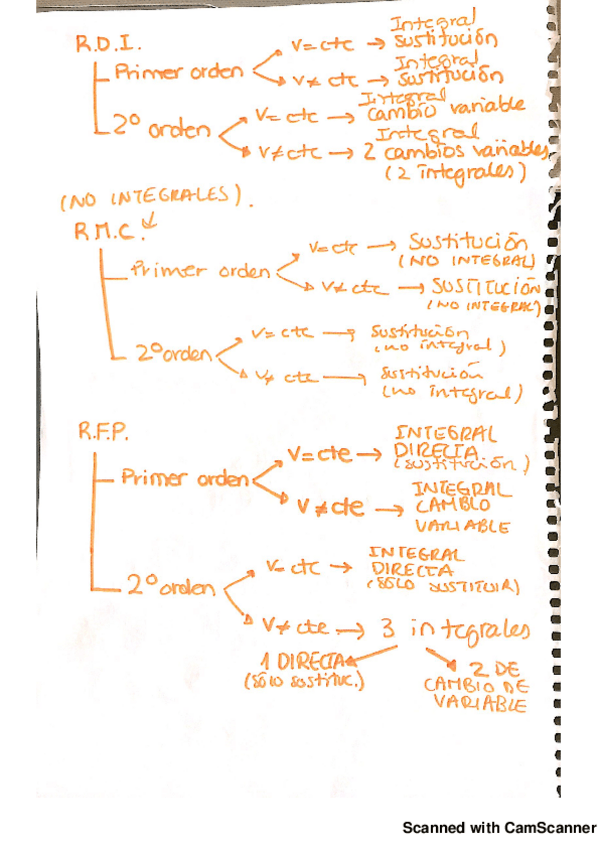 R.D.I.
Primer orden
V = ctc → Integral sustitución
V ≠ ctc → Integral sustitución
2º orden
V = ctc → Integral cambio variable
V ≠ ctc → Integral 2 cambios variables
(2 integrales)
(NO INTEGRALES).
R.M.C.
Primer orden
V = ctc → Sustitución
(NO INTEGRAL)
V ≠ ctc → SUSTITUCIÓN
(NO INTEGRAL)
2º orden
V = ctc → Sustitución
(no integral)
V ≠ ctc → Sustitución
(no integral)
R.F.P.
Primer orden
V = cte → INTEGRAL
DIRECTA
(sustitución)
V ≠ cte → INTEGRAL
CAMBIO
VARIABLE
2º orden
V = ctc → INTEGRAL
DIRECTA
(SÓLO SUSTITUIR)
V ≠ cte → 3 integrales
1 DIRECTA
(sólo sustituc.)
2 DE
CAMBIO DE
VARIABLE
Scanned with CamScanner